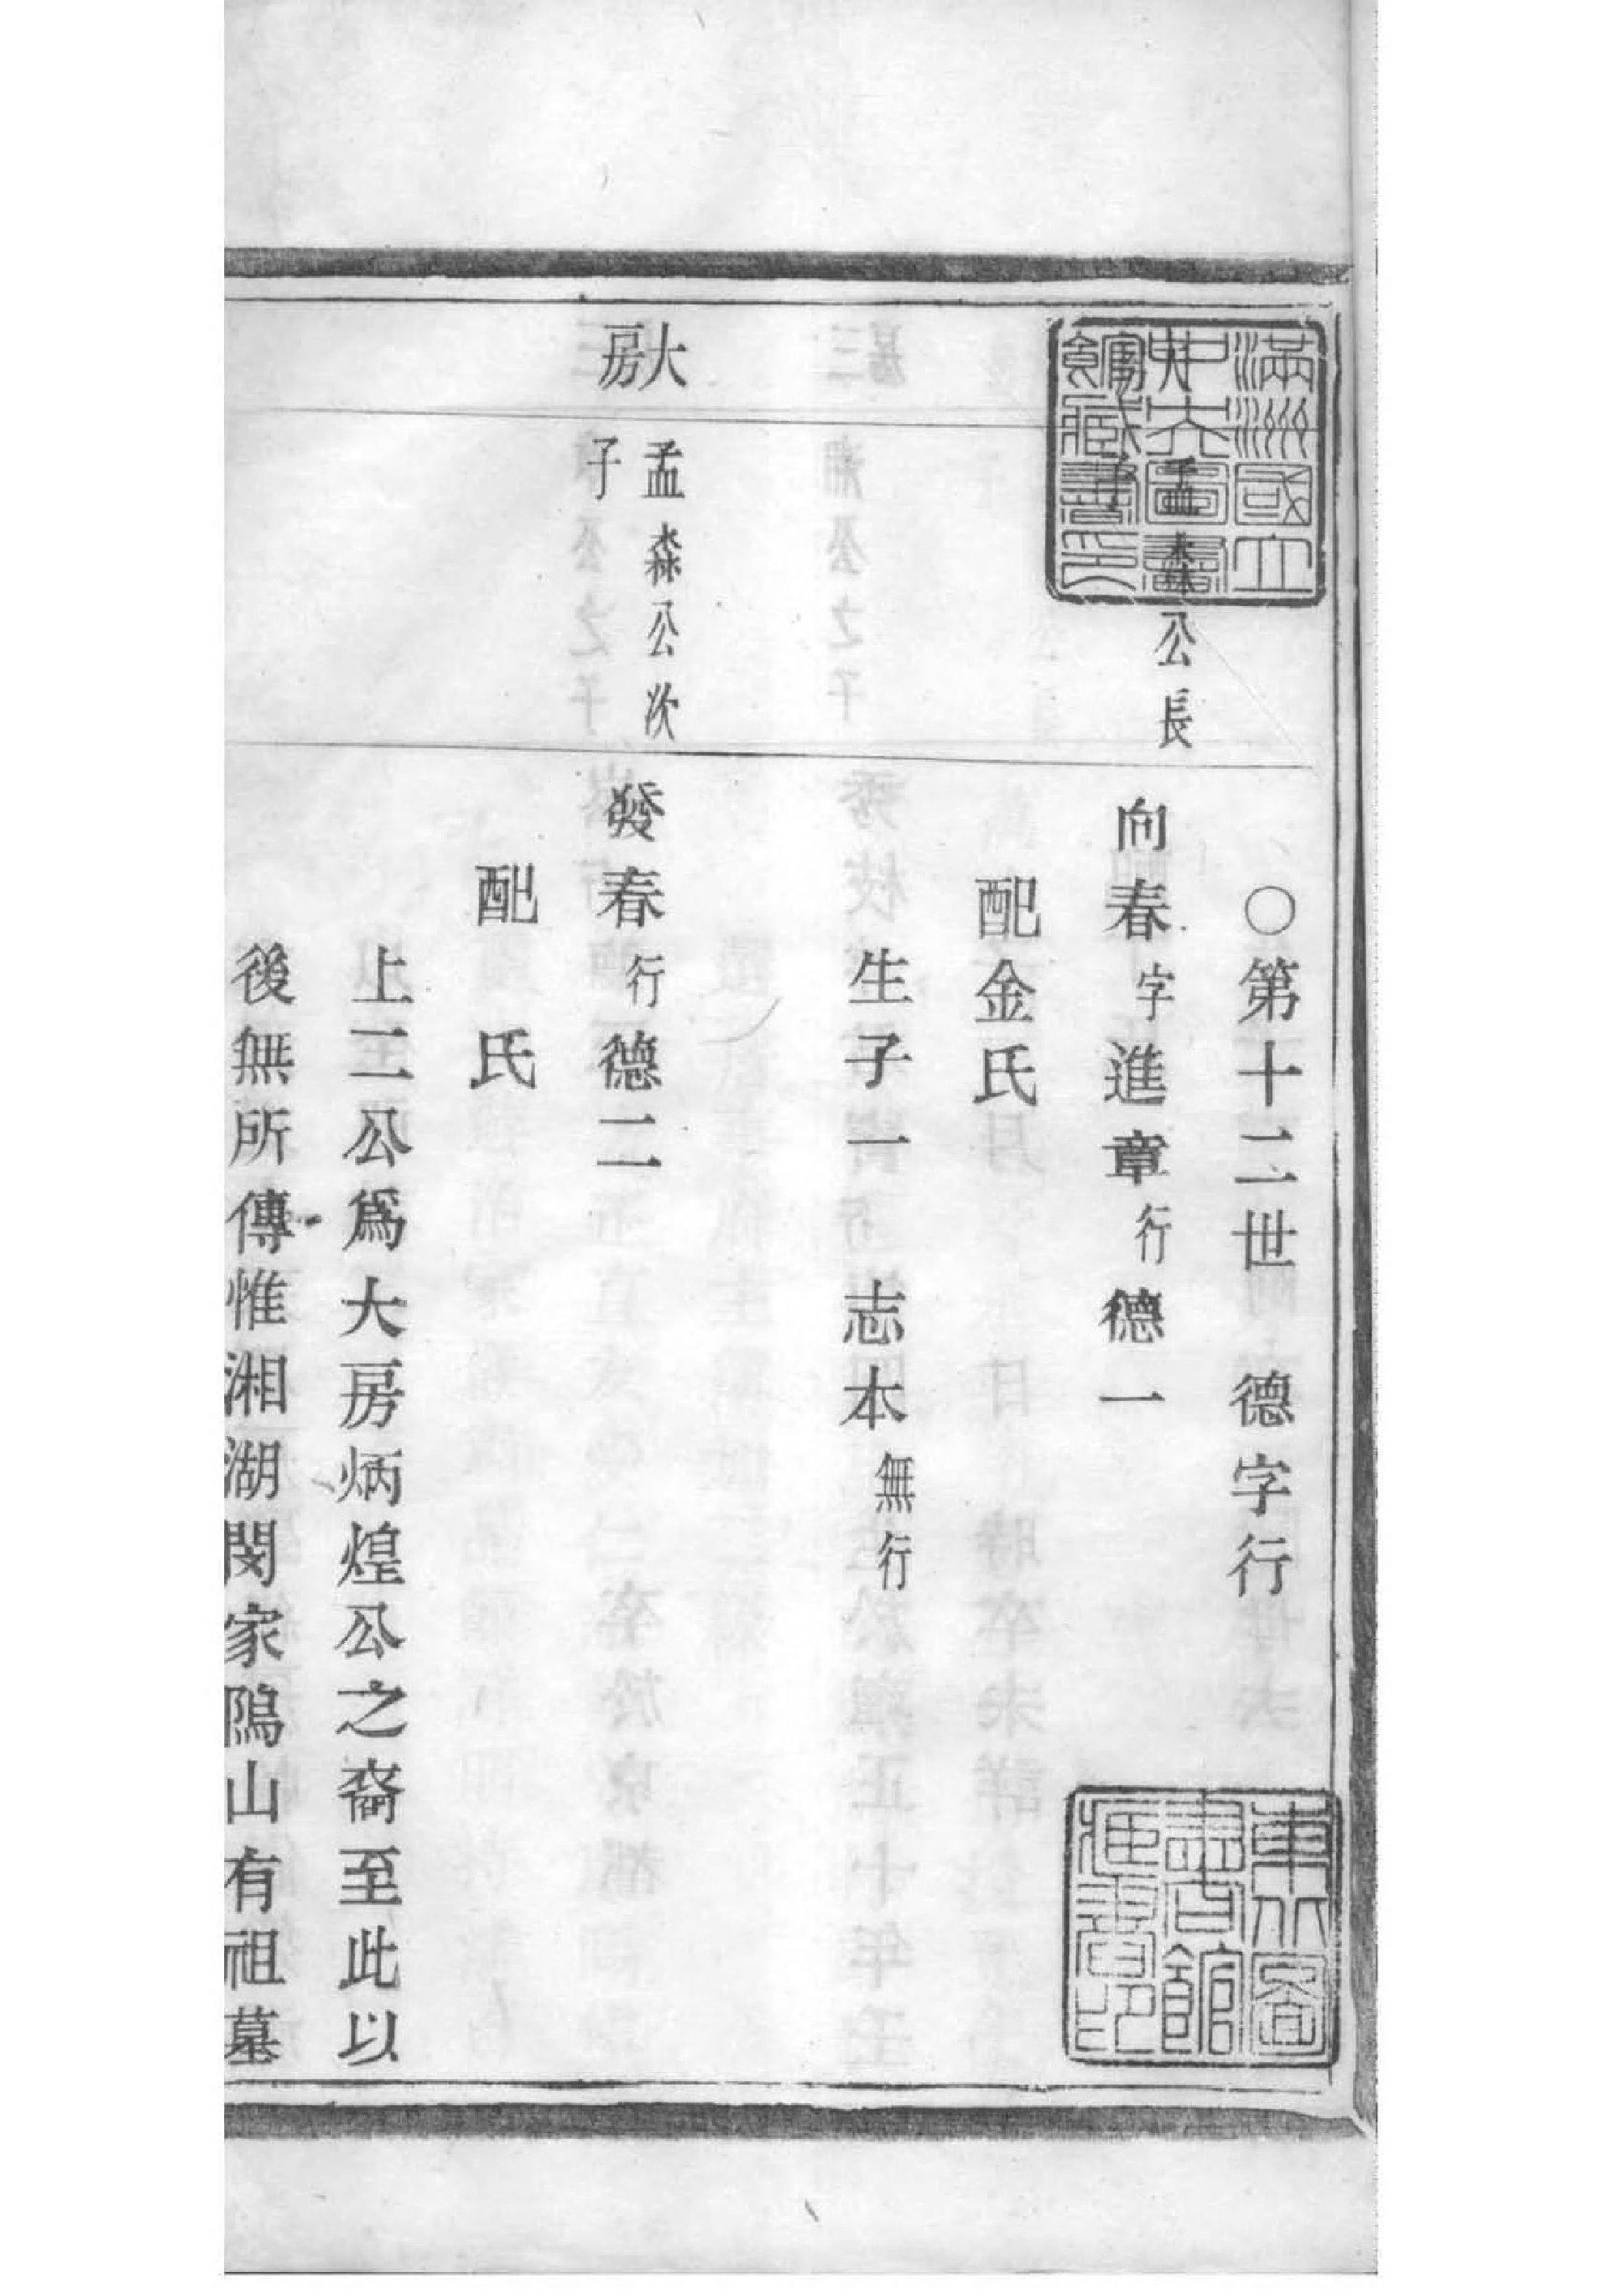 滿洲國立
中央圖書
館藏書印
東北圖
書館
藏書印
○第十二世 德字行
大房
孟森公長
子
向春字進章行德一
配金氏
生子一 志本無行
大房
孟森公次
子
發春行德二
配 氏
上二公爲大房炳煌公之裔至此以
後無所傳惟湘湖閔家隖山有祖墓